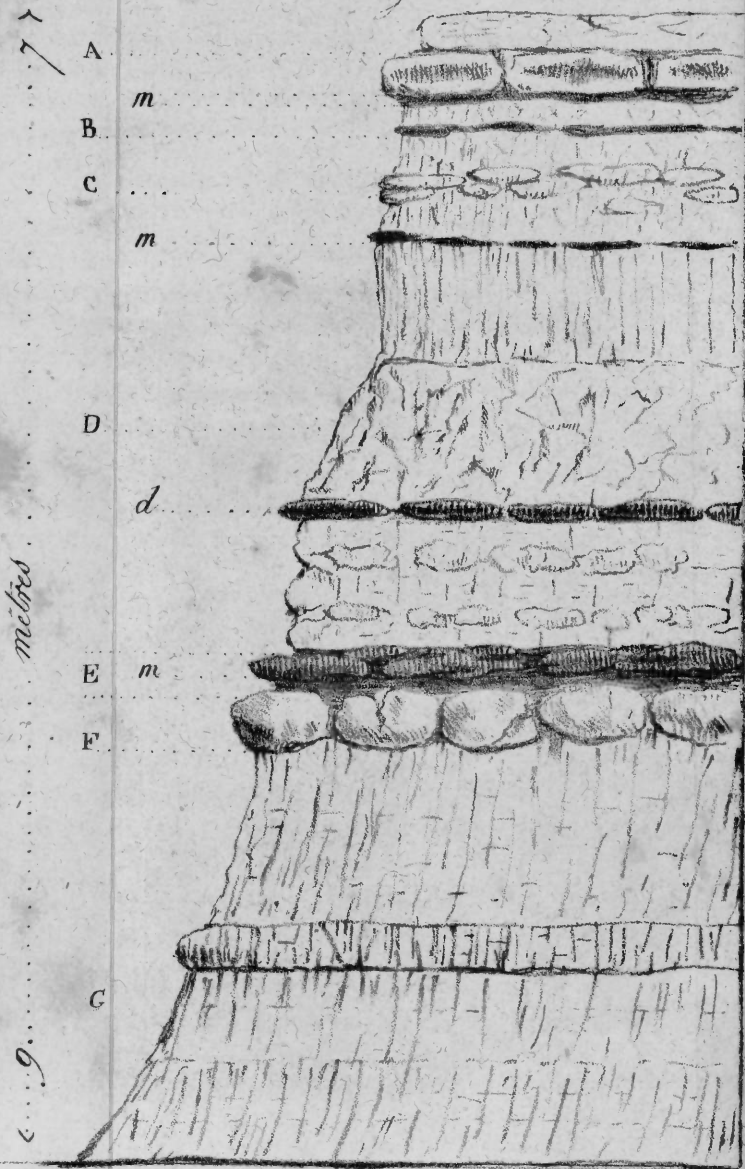 A
m
B
C
m
D
d
E m
F
G
9 mètres